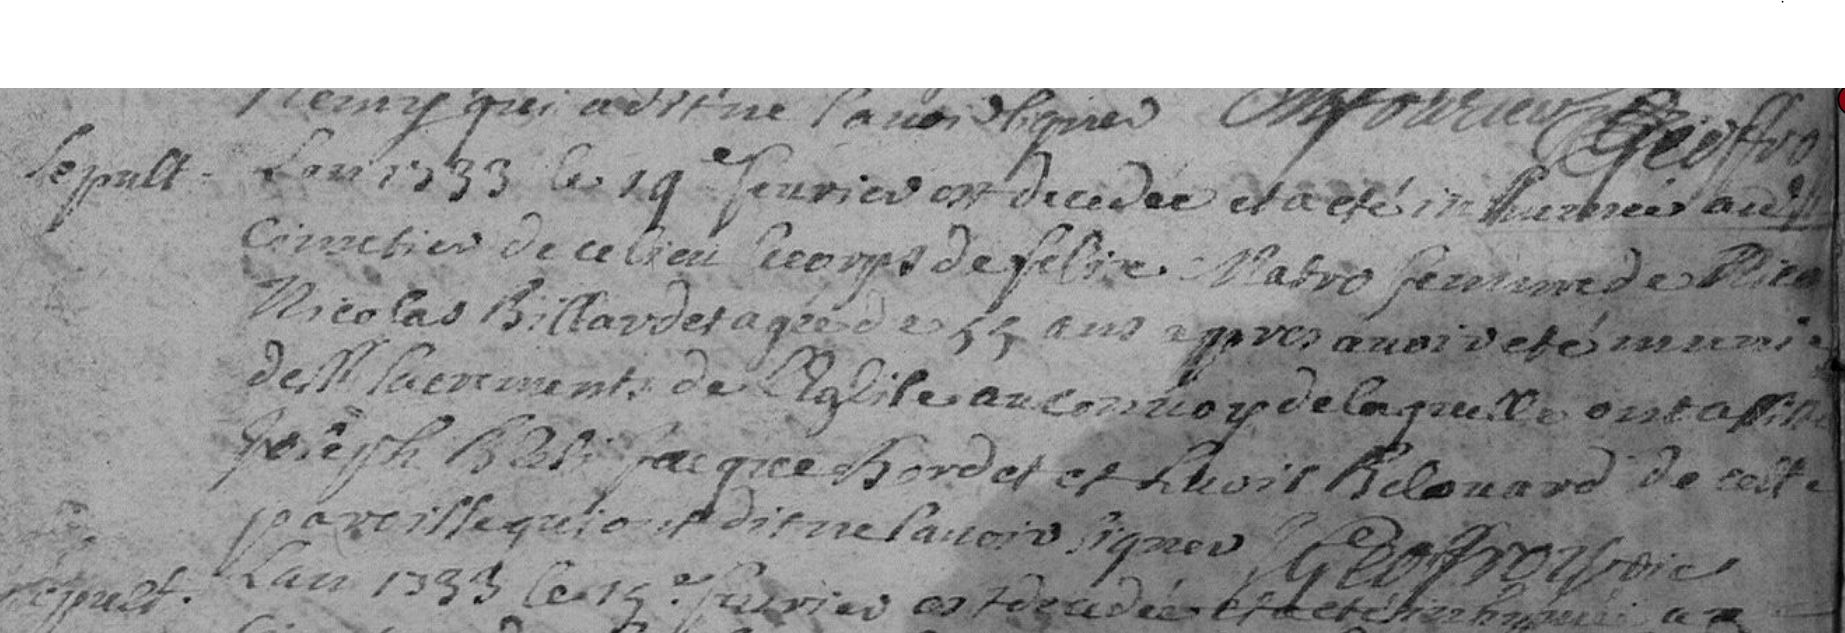 Remy qui a dit ne scavoir signer Geoffro
Sepult. Lan 1733 le 19e feurier est decedée et a eté inhumée au
Cimetier de ce lieu le corps de felixe Matro femme de Nico
Nicolas Billardet agée de 55 ans apres auoir eté munie
des Sts sacrements de l'Eglise au conuoy de laquelle ont assisté
Joseph jacque Bordet et Louis Belouard de cette
paroisse qui ont dit ne sauoir signer Geoffroy vic
sepult. Lan 1733 le 19e feurier est decedée et a eté inhumé au